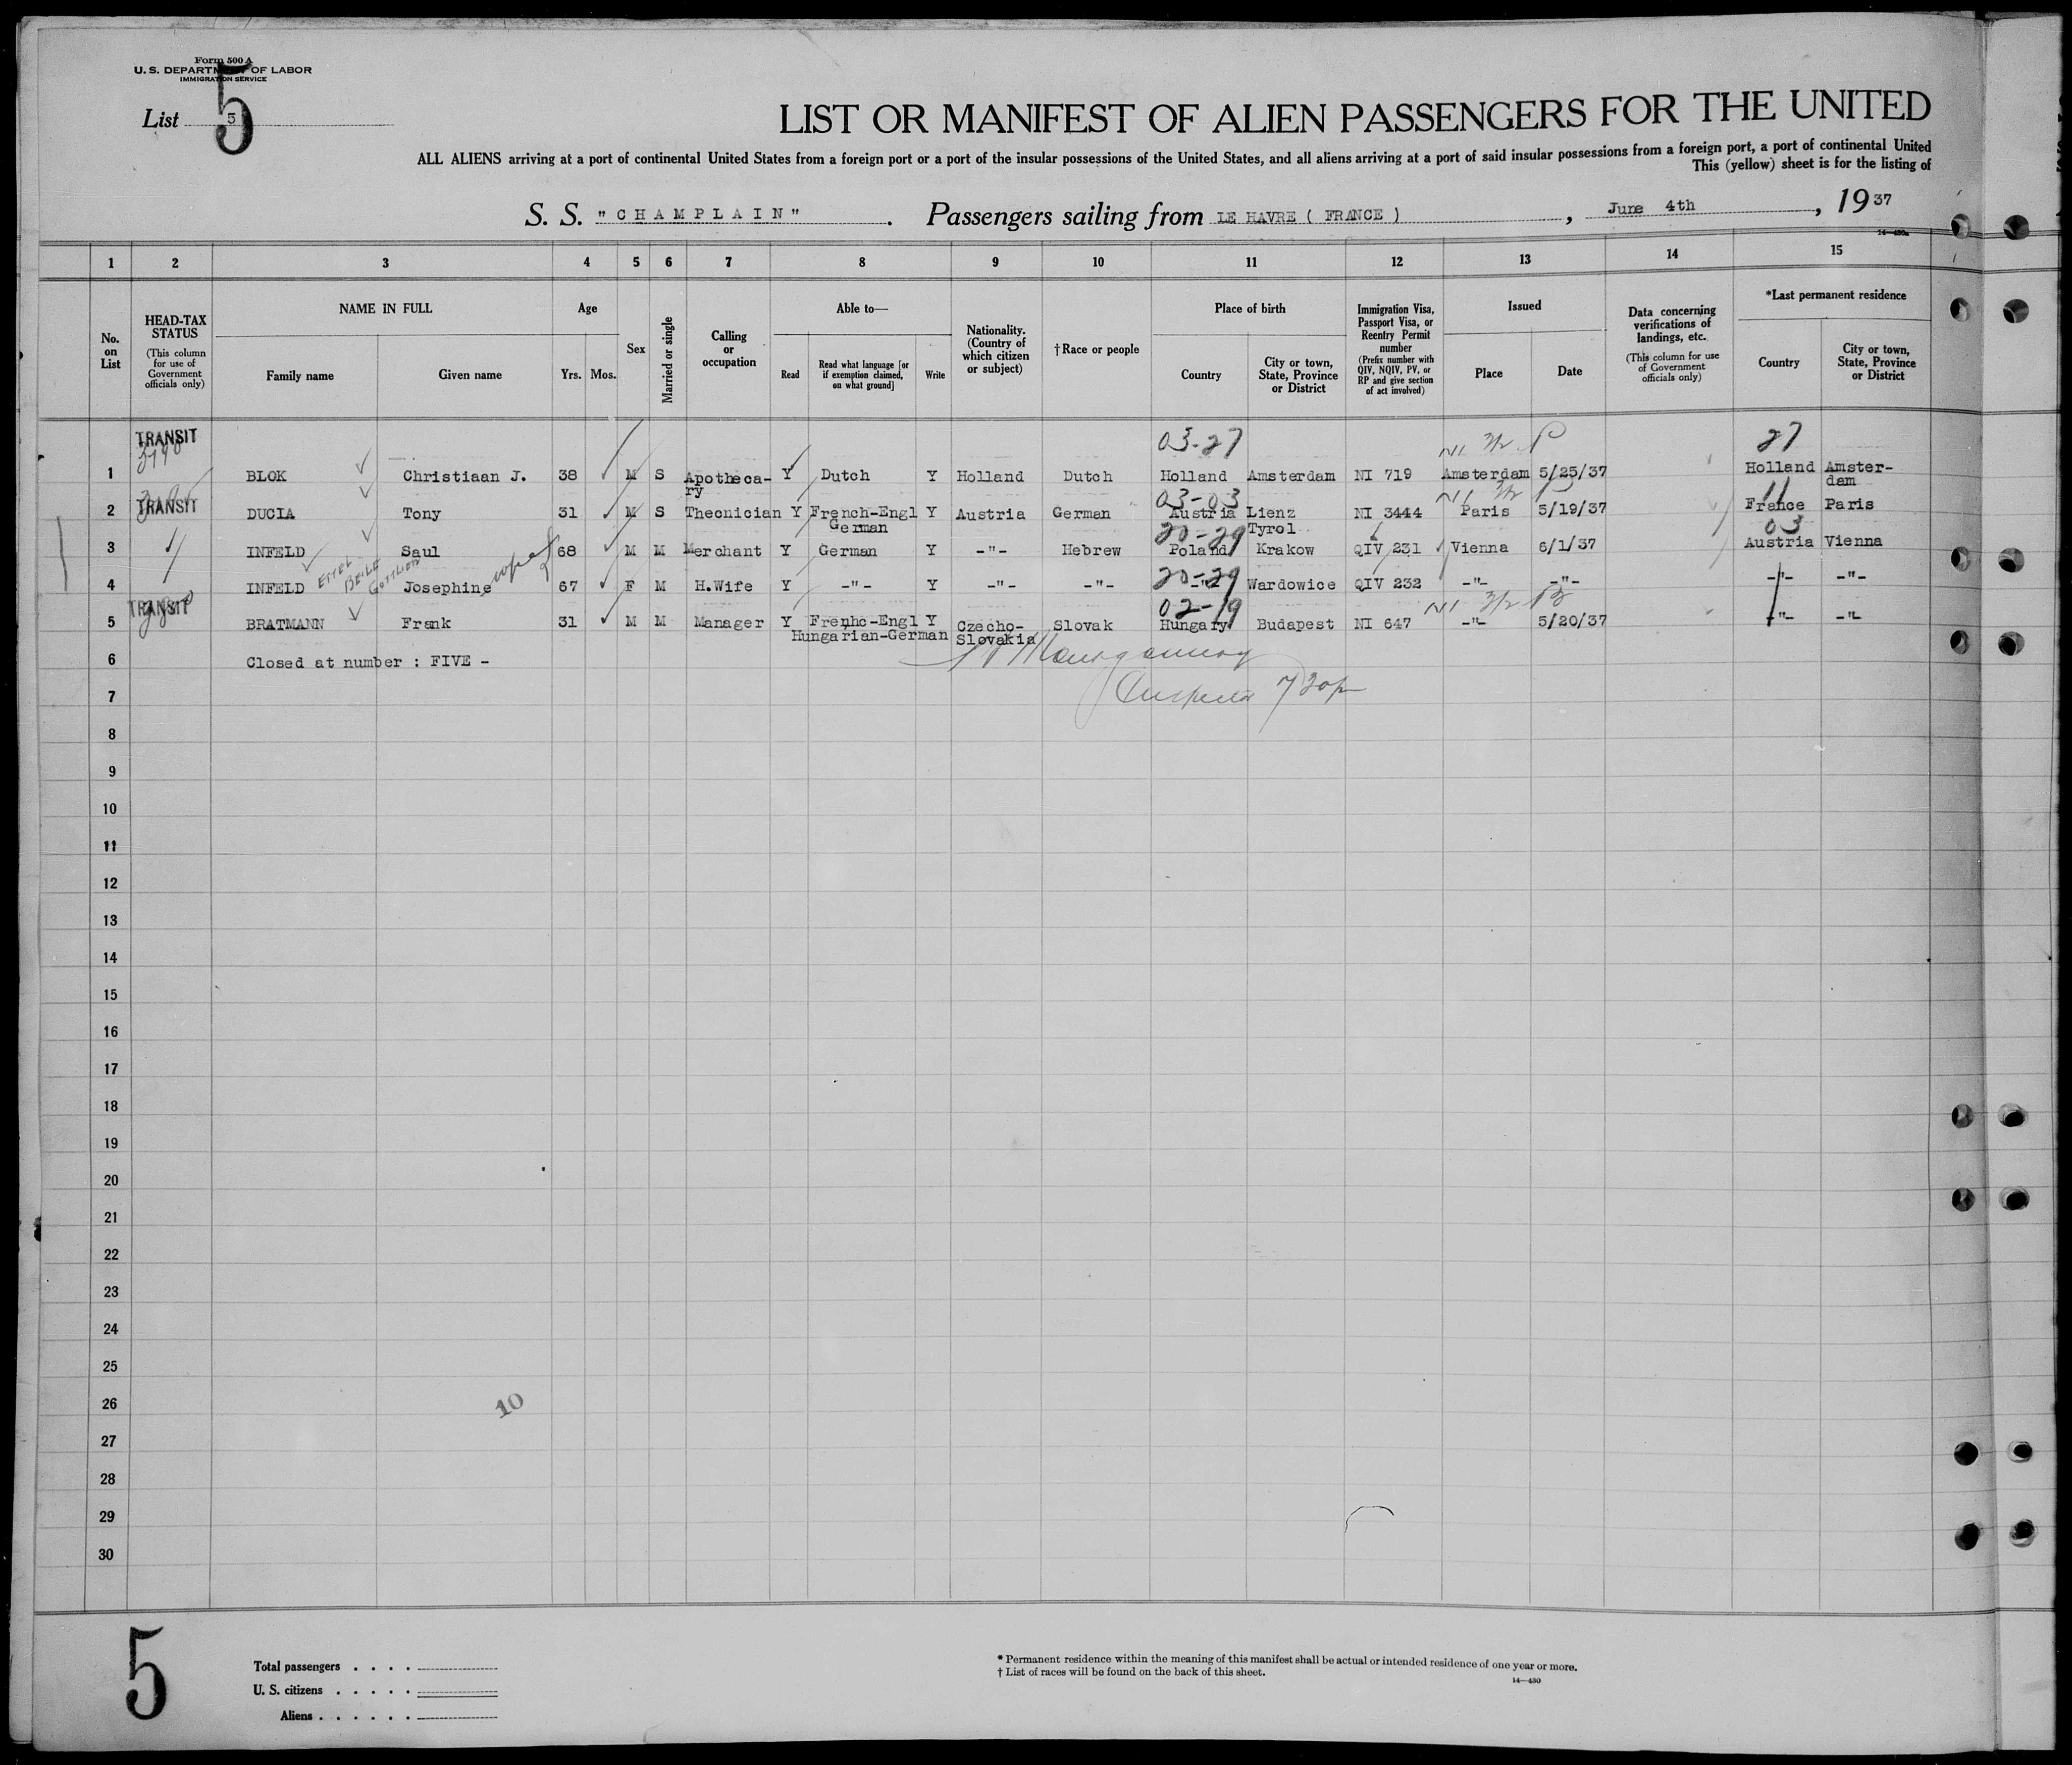 Form 500 A
U. S. DEPARTMENT OF LABOR
IMMIGRATION SERVICE
List 5
5
LIST OR MANIFEST OF ALIEN PASSENGERS FOR THE UNITED
ALL ALIENS arriving at a port of continental United States from a foreign port or a port of the insular possessions of the United States, and all aliens arriving at a port of said insular possessions from a foreign port, a port of continental United
This (yellow) sheet is for the listing of
S. S. "CHAMPLAIN". Passengers sailing from LE HAVRE ( FRANCE ), June 4th, 1937
14—430a
1 2 3 4 5 6 7 8 9 10 11 12 13 14 15
No. on List
HEAD-TAX STATUS
(This column for use of Government officials only)
NAME IN FULL
Family name
Given name
Age
Yrs. Mos.
Sex
Married or single
Calling or occupation
Able to—
Read
Read what language [or if exemption claimed, on what ground]
Write
Nationality. (Country of which citizen or subject)
†Race or people
Place of birth
Country
City or town, State, Province or District
Immigration Visa, Passport Visa, or Reentry Permit number
(Prefix number with QIV, NQIV, PV, or RP and give section of act involved)
Issued
Place
Date
Data concerning verifications of landings, etc.
(This column for use of Government officials only)
*Last permanent residence
Country
City or town, State, Province or District
TRANSIT 03-27 27
1 BLOK Christiaan J. 38 M S Apotheca- Y Dutch Y Holland Dutch Holland Amsterdam NI 719 Amsterdam 5/25/37 Holland Amster-
ry dam
03-03 11
2 TRANSIT DUCIA Tony 31 M S Thecnician Y French-Engl Y Austria German Austria Lienz NI 3444 Paris 5/19/37 France Paris
German Tyrol
20-29 03
3 INFELD Saul 68 M M Merchant Y German Y -"- Hebrew Poland Krakow QIV 231 Vienna 6/1/37 Austria Vienna
ETTEL BEILE GOTTLIEB
20-29
4 INFELD Josephine wife of 67 F M H.Wife Y -"- Y -"- -"- -"- Wardowice QIV 232 -"- -"- -"- -"-
TRANSIT 02-19
5 BRATMANN Frank 31 M M Manager Y Frenhc-Engl Y Czecho- Slovak Hungary Budapest NI 647 -"- 5/20/37 -"- -"-
Hungarian-German Slovakia
6 Closed at number : FIVE -
Montgomery
7 Inspector 730p
8
9
10
11
12
13
14
15
16
17
18
19
20
21
22
23
24
25
26
10
27
28
29
30
5
Total passengers . . . .
U. S. citizens . . . . .
Aliens . . . . . .
* Permanent residence within the meaning of this manifest shall be actual or intended residence of one year or more.
† List of races will be found on the back of this sheet.
14—430